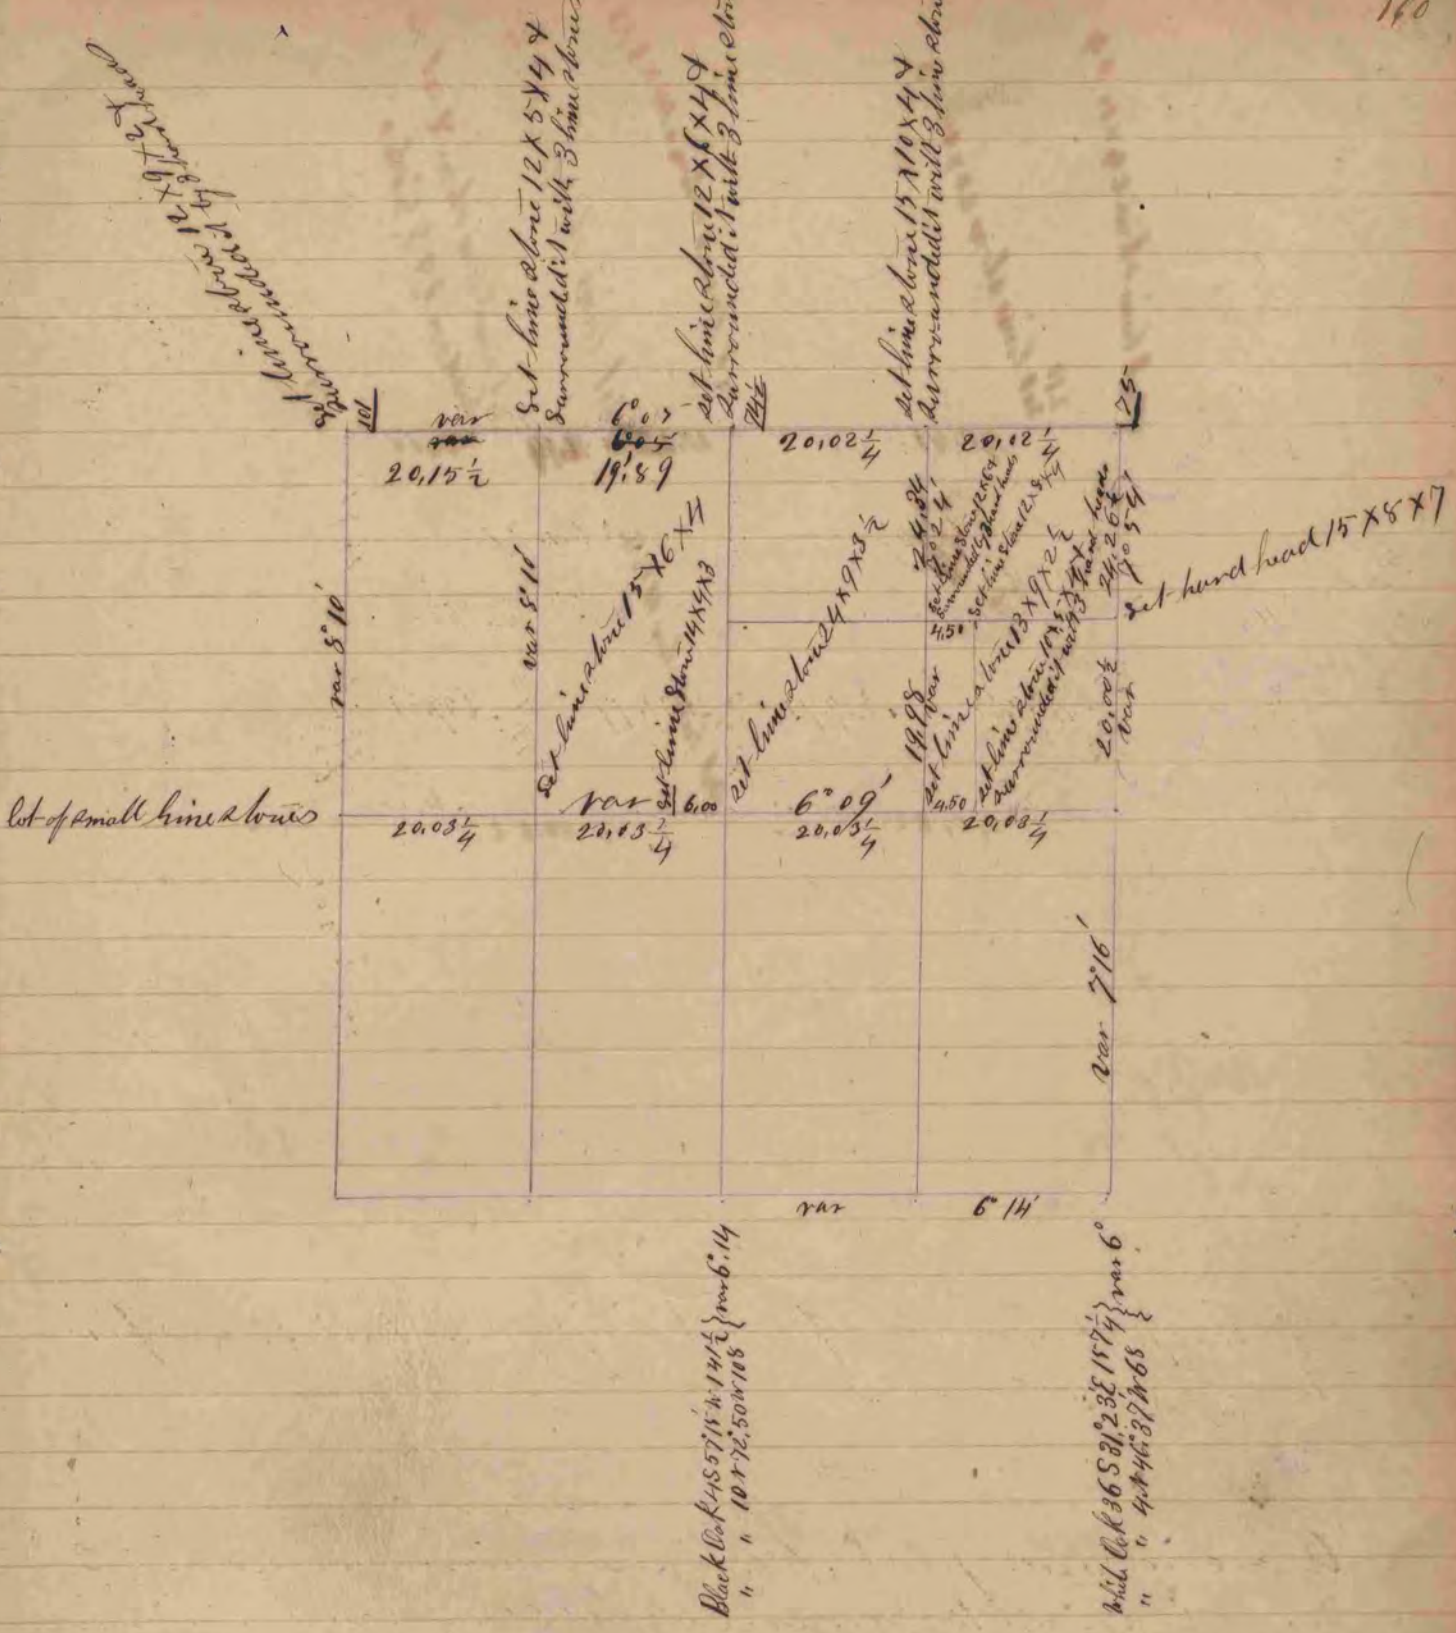 160
Set lime stone 12 X 9 X 2 &
surrounded it by 3 hard head
Set lime stone 12 X 5 X 4 &
surrounded it with 3 lime stones
set lime stone 12 X 6 X 4 &
surrounded it with 3 lime ston
set lime stone 15 X 10 X 4 &
surrounded it with 3 lime ston
101
var
6° 07
74½
75
var
6° 05
20,15½
19,89
20,02¼
20,02¼
var 8° 10'
var 8° 10'
set lime stone 15 X 6 X 4
set lime stone 14 X 4 X 3
set lime stone 24 X 9 X 3½
24,34
7° 24'
set lime stone 12 X 6 X 4
surrounded by 3 hard heads
set lime stone 12 X 8 X 4
24,26½
7° 54'
set hard head 15 X 8 X 7
4.50
19,98
var
set lime stone 13 X 9 X 2½
set lime stone
surrounded it with 3 hard heads
20,00½
var
lot of small lime stones
var
6,00
6° 09'
4,50
20,03¼
20,03¼
20,03¼
20,03¼
var 7° 16'
var
6° 14'
Black Oak 4 S 57° 15' W 141½ } var 6° 14
" " 10 N 72°, 50 W 108
White Oak 36 S 31°, 23' E 157¼ } var 6°
" " 4 N 46° 37' W 68